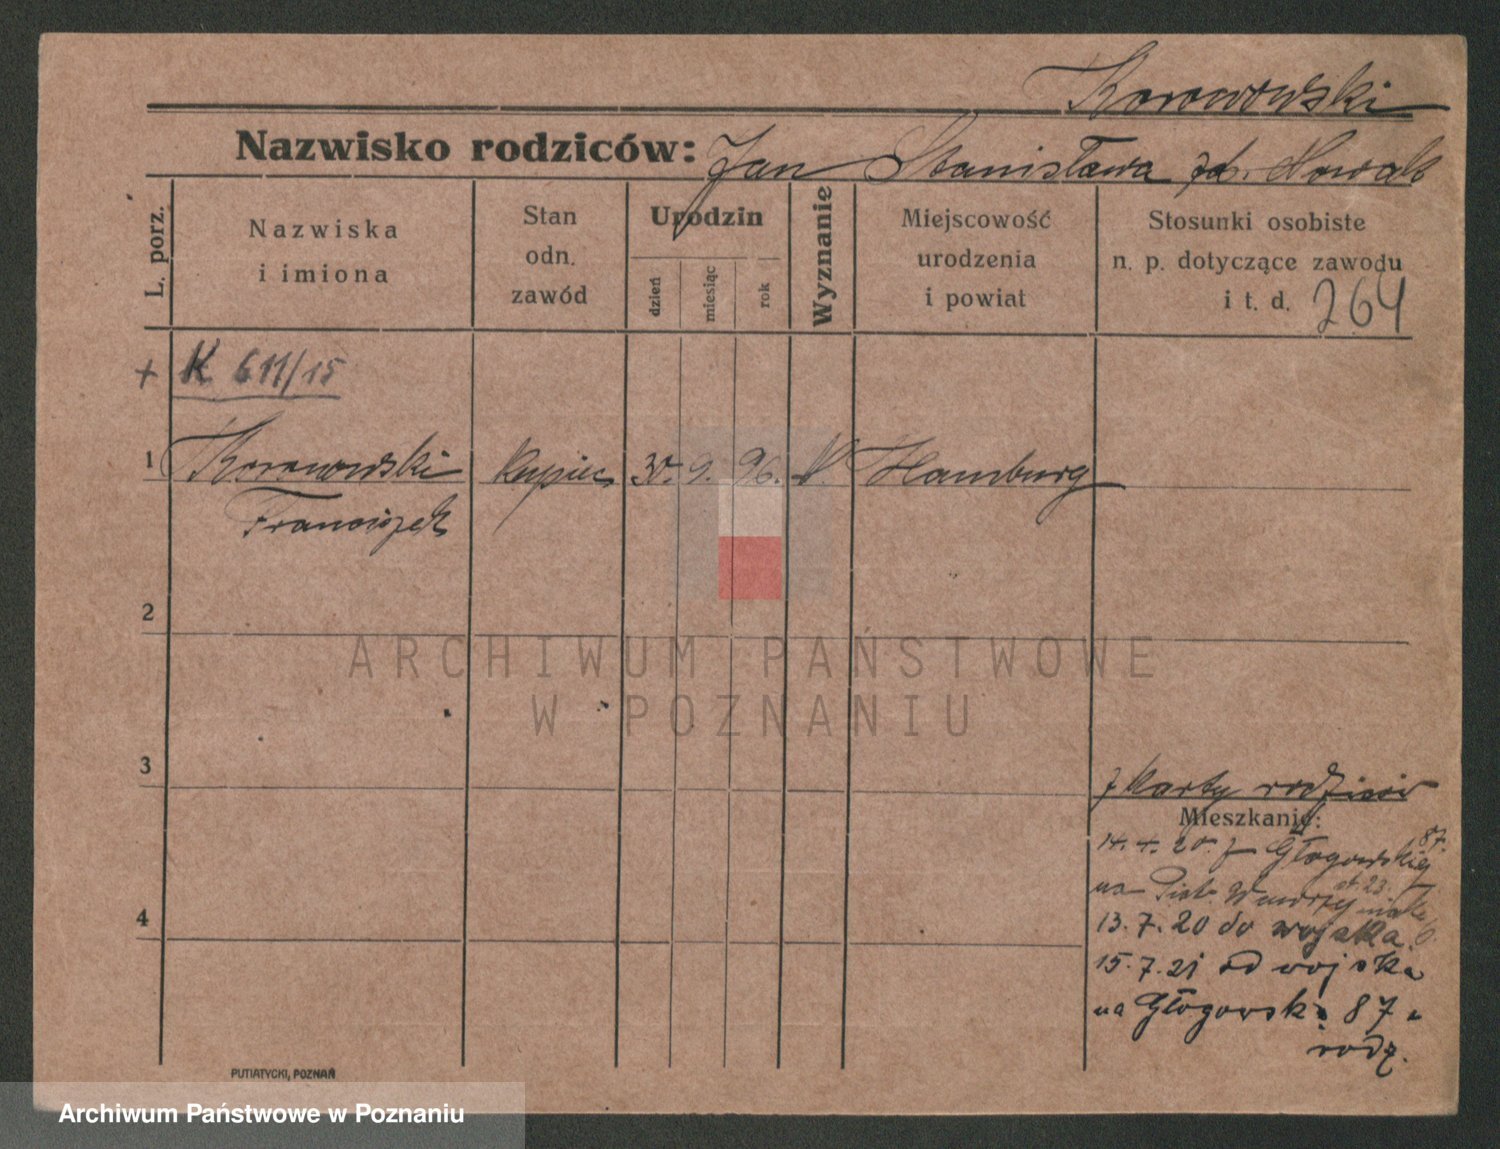 Korowowski
Nazwisko rodziców: Jan Stanisława zd. Nowak
L. porz.
Nazwiska
i imiona
Stan
odn.
zawód
Urodzin
dzień
miesiąc
rok
Wyznanie
Miejscowość
urodzenia
i powiat
Stosunki osobiste
n. p. dotyczące zawodu
i t. d. 264
+ K 611/15
1 Korowowski kupiec 30. 9. 96. Hamburg
Franciszek
2
ARCHIWUM PAŃSTWOWE
W POZNANIU
3
z karty rodziców
Mieszkanie:
14. 4. 20. z Głogowskiej 87.
na
4
13. 7. 20 do wojska
15. 7. 21 od wojska
na Głogowską 87
rodz.
PUTIATYCKI, POZNAŃ
Archiwum Państwowe w Poznaniu